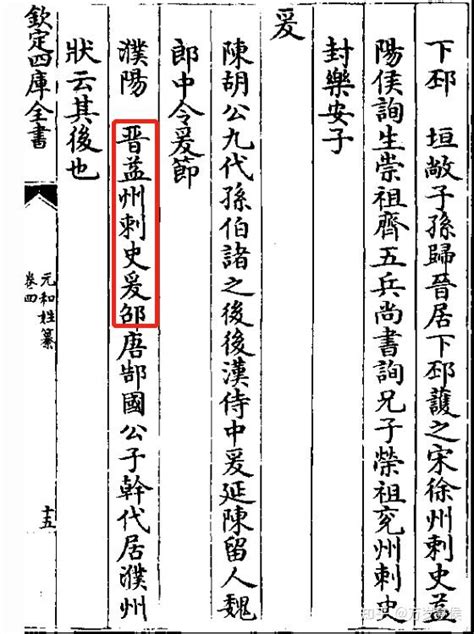 下邳　垣敞子孫歸晉居下邳護之宋徐州刺史益
陽侯詢生崇祖齊五兵尚書詢兄子榮祖兖州刺史
封樂安子
爰
陳胡公九代孫伯諸之後後漢侍中爰延陳留人魏
郎中令爰節
濮陽　晋益州刺史爰邵唐郜國公子幹代居濮州
狀云其後也
欽定四庫全書
元和姓纂
卷四
十五
知乎